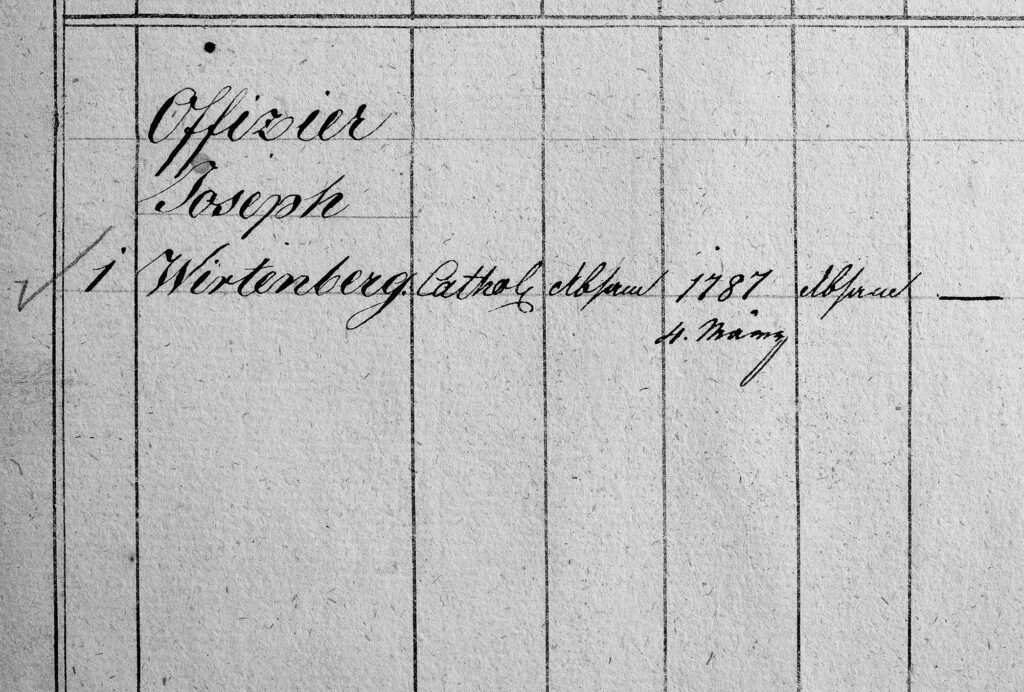 Offizier
Joseph
1 Wirtenberg. Cathol. Absam 1787 Absam —
4. März